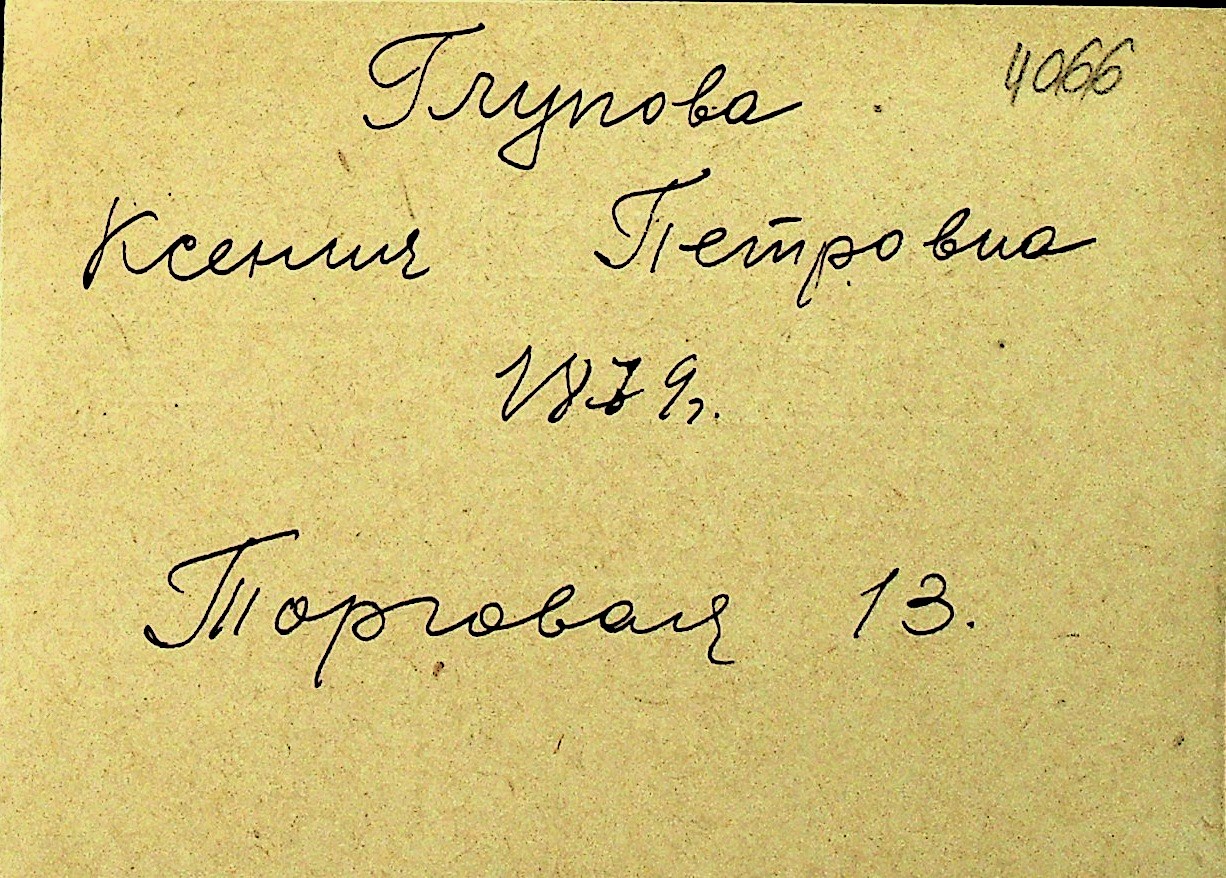 4066
Глупова
Ксения Петровна
1879г.
Торговая 13.